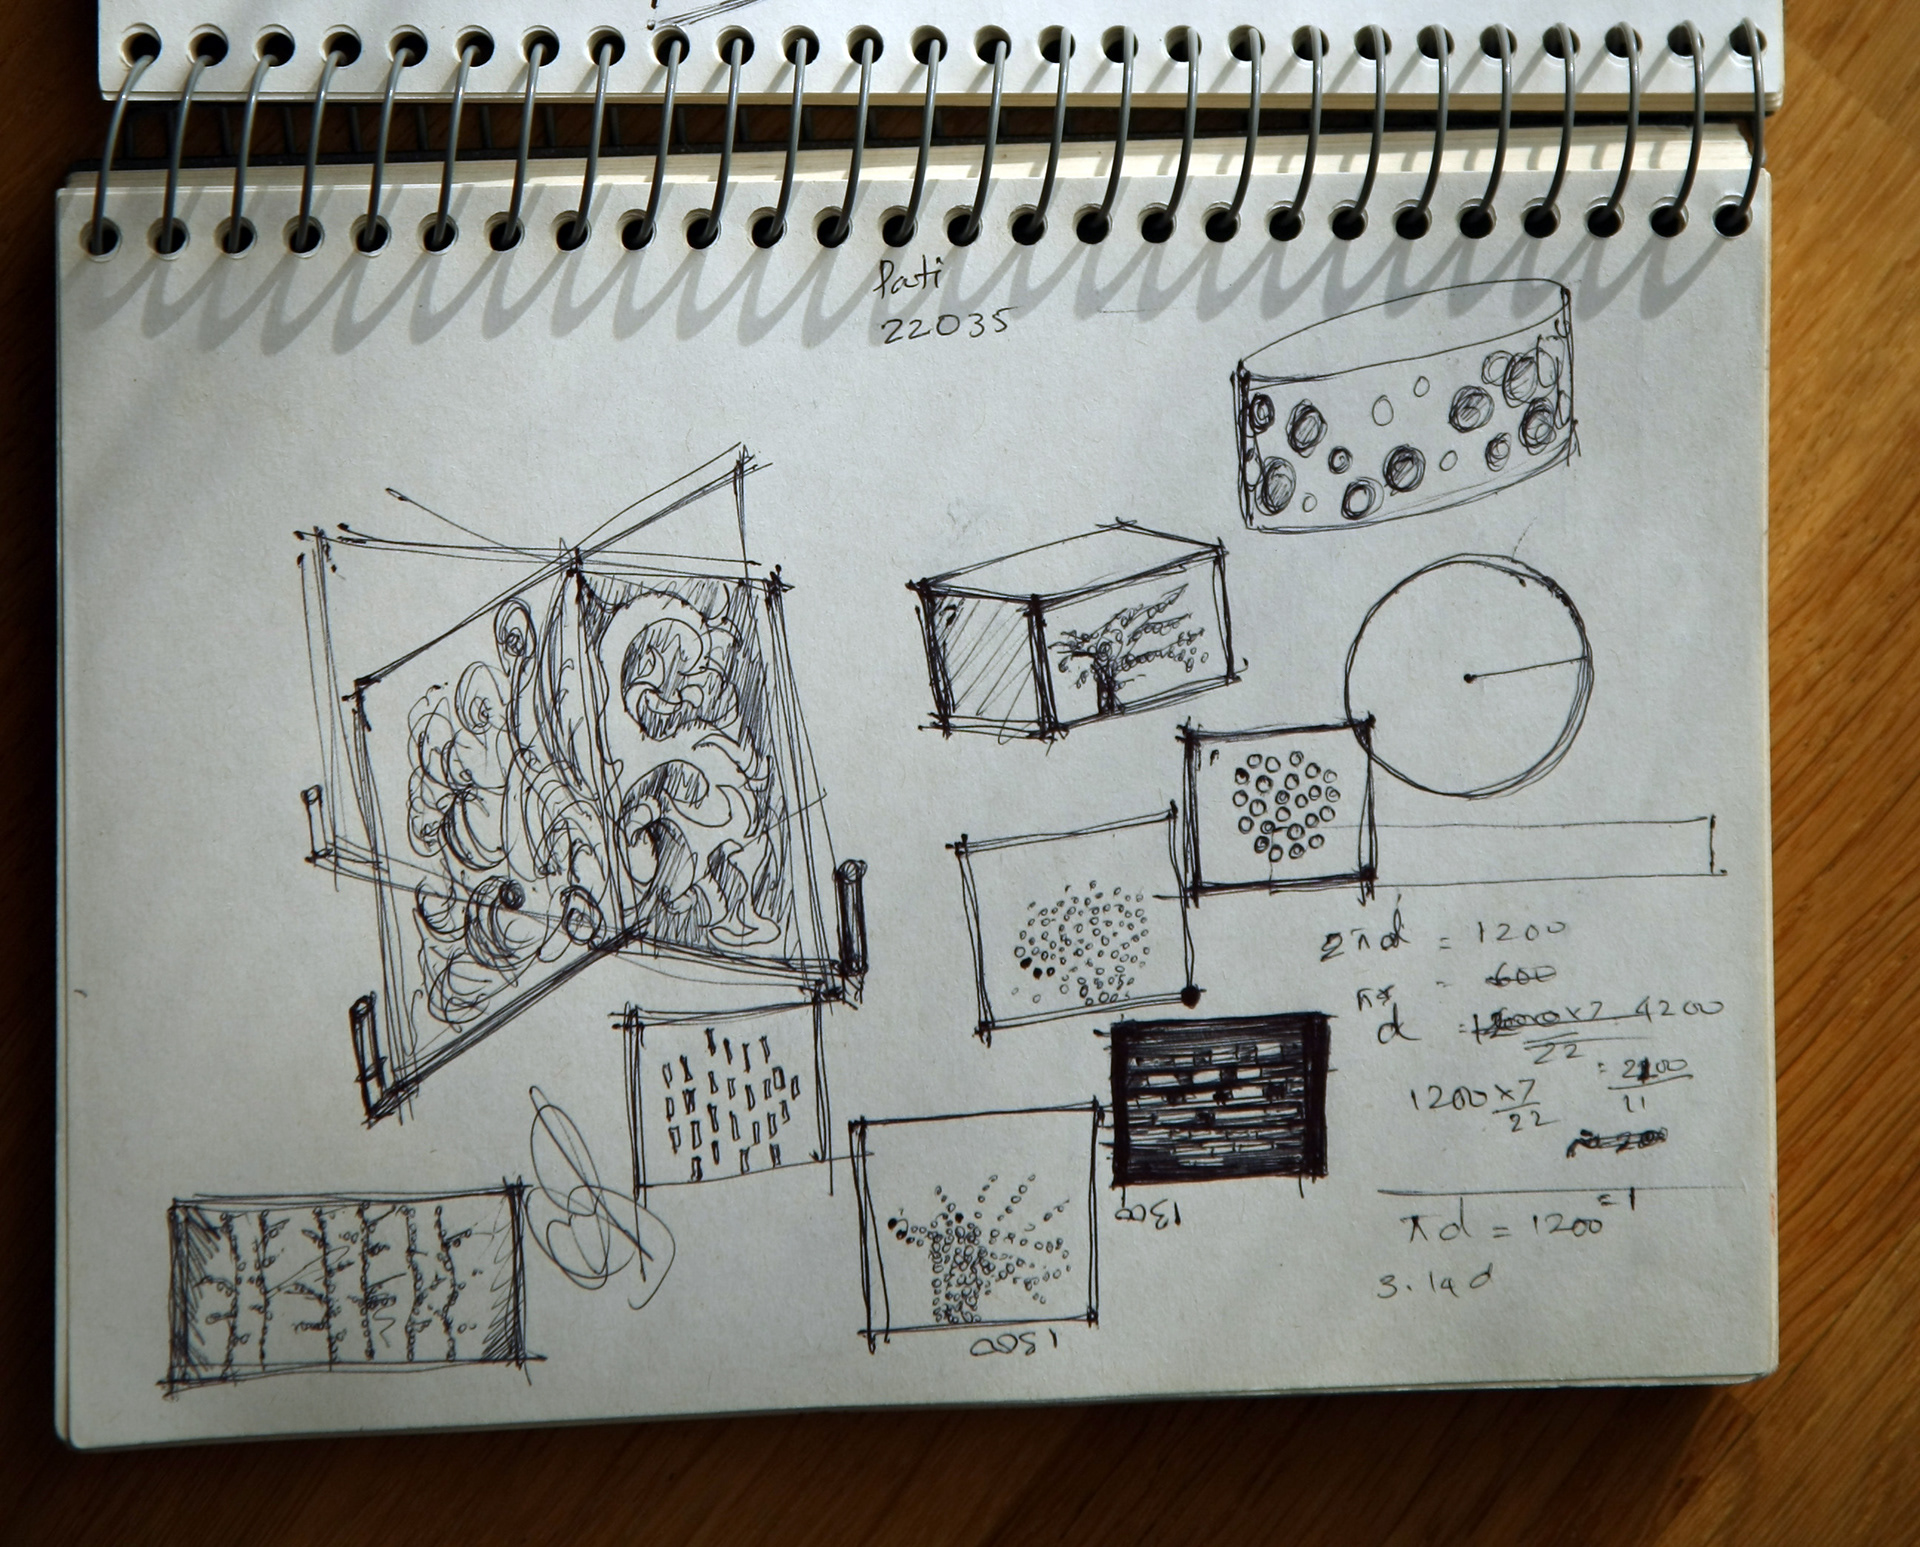 Pati
22035
2πd = 1200
= 600
d = 4200
22
1200 × 7
22
= 2100
11
πd = 1200
3.14 d
1300
1300